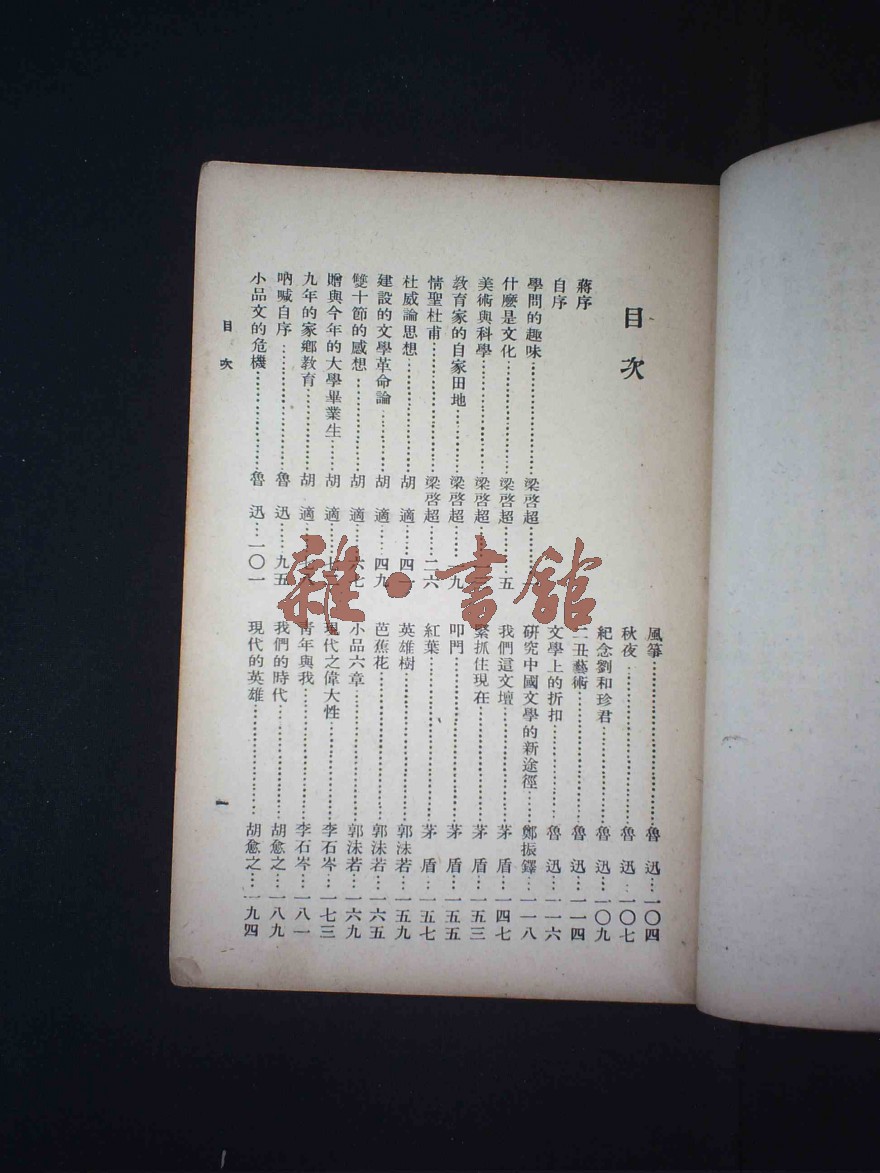 目次
蔣序
自序
學問的趣味……………梁啓超…
什麽是文化……………梁啓超……五
美術與科學……………梁啓超…
教育家的自家田地………梁啓超…九
情聖杜甫………………梁啓超…二六
杜威論思想……………胡 適…四一
建設的文學革命論………胡 適…四九
雙十節的感想……………胡 適…六七
贈與今年的大學畢業生……胡 適…
九年的家鄉教育…………胡 適…
吶喊自序………………魯 迅…九五
小品文的危機……………魯 迅…一〇一
風箏……………………魯 迅…一〇四
秋夜……………………魯 迅…一〇七
紀念劉和珍君……………魯 迅…一〇九
二丑藝術………………魯 迅…一一四
文學上的折扣……………魯 迅…一一六
研究中國文學的新途徑……鄭振鐸…一一八
我們這文壇……………茅 盾…一四七
緊抓住現在……………茅 盾…一五三
叩門……………………茅 盾…一五五
紅葉……………………茅 盾…一五七
英雄樹…………………郭沫若…一五九
芭蕉花…………………郭沫若…一六五
小品六章………………郭沫若…一六九
現代之偉大性……………李石岑…一七三
青年與我………………李石岑…一八一
我們的時代……………胡愈之…一八九
現代的英雄……………胡愈之…一九四
目次
一
雜·書館